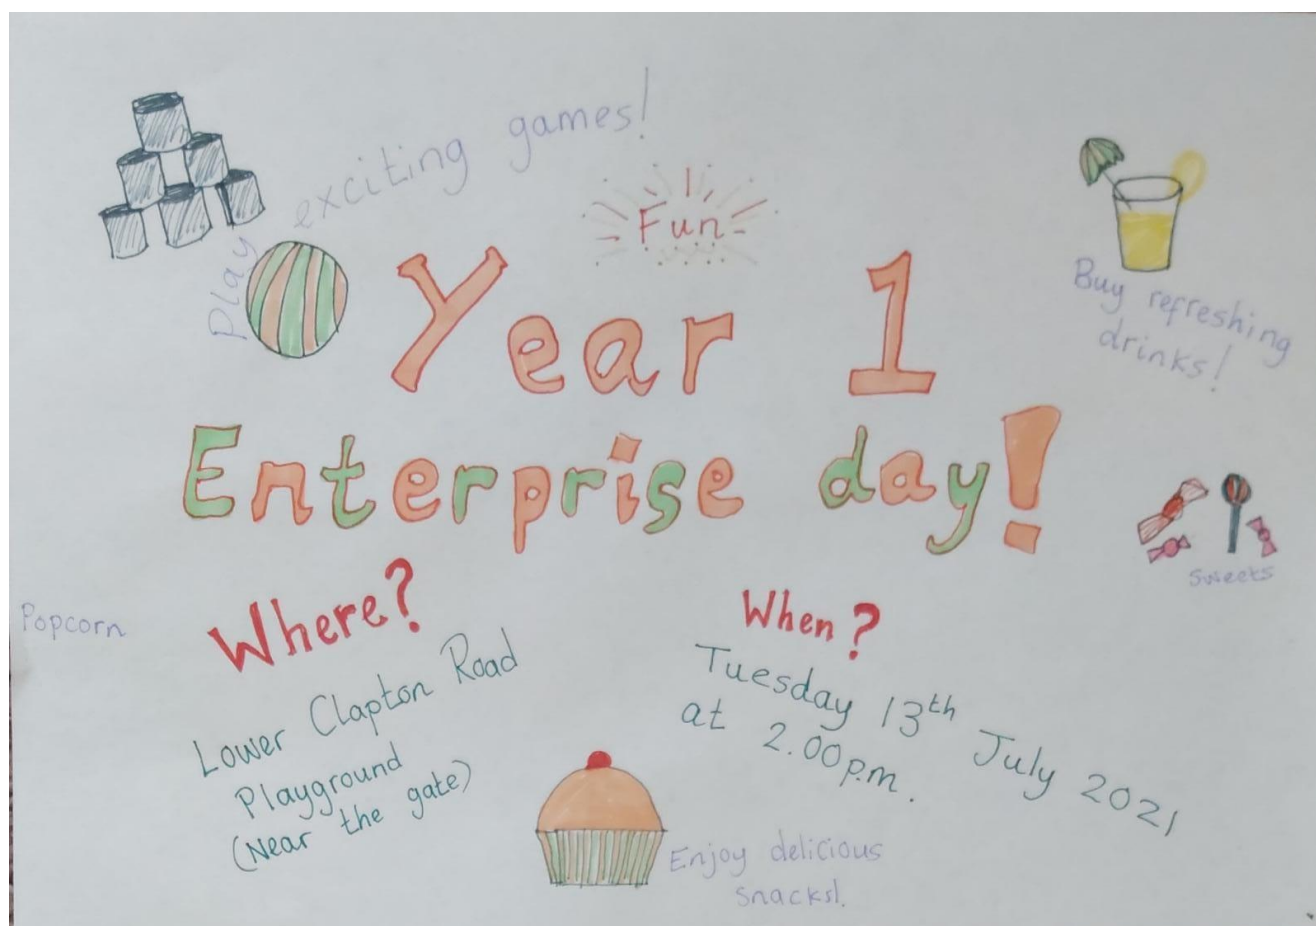 Play exciting games!
Fun
Buy refreshing
drinks!
Year 1
Enterprise day!
Sweets
Popcorn
Where?
Lower Clapton Road
Playground
(Near the gate)
When?
Tuesday 13th July 2021
at 2.00p.m.
Enjoy delicious
snacks!